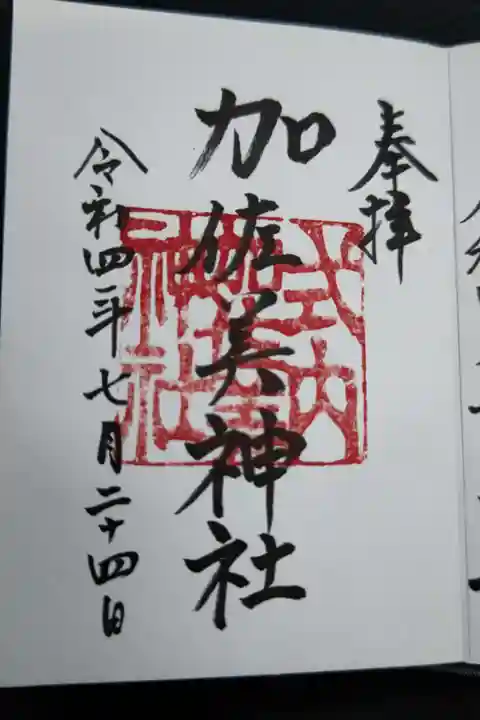 奉拝
加佐美神社
令和四年七月二十四日
式内
神社